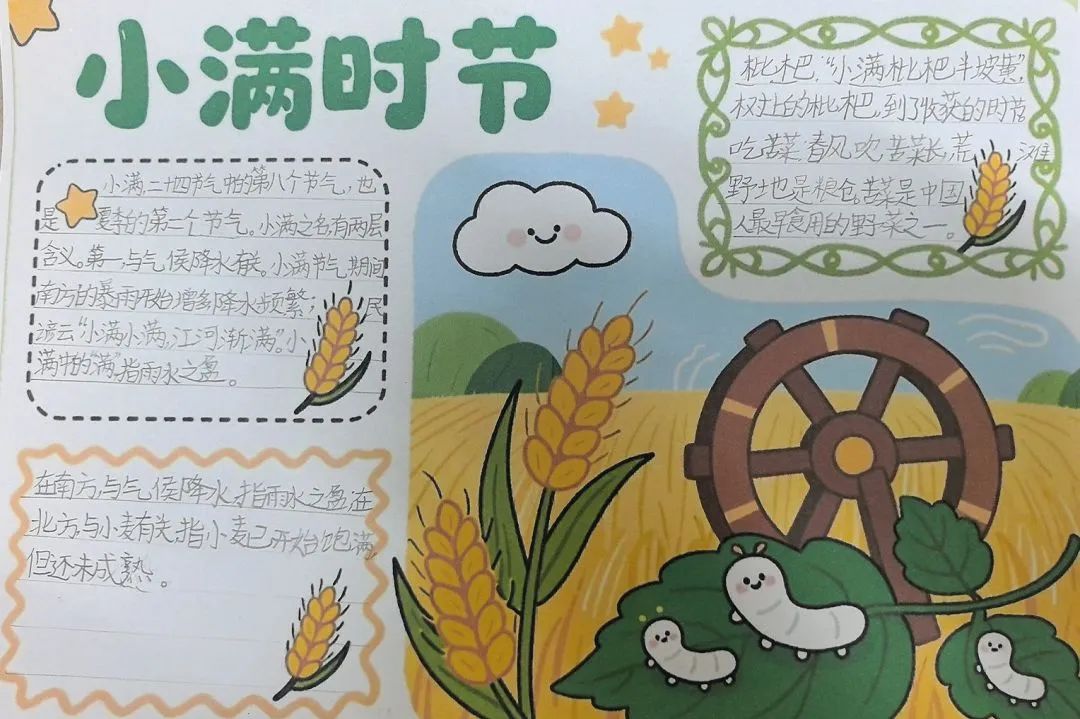 小满时节
小满,二十四节气中的第八个节气,也
是夏季的第二个节气。小满之名,有两层
含义。第一,与气侯降水有关。小满节气期间
南方的暴雨开始增多,降水频繁;民
谚云“小满小满,江河渐满”。小
满中的“满”,指雨水之盈。
在南方,与气侯降水,指雨水之盈;在
北方,与小麦有关,指小麦已开始饱满,
但还未成熟。
枇杷,“小满枇杷半坡黄”,
树上的枇杷,到了收获的时节
吃苦菜,春风吹,苦菜长,荒滩
野地是粮仓。苦菜是中国
人最早食用的野菜之一。